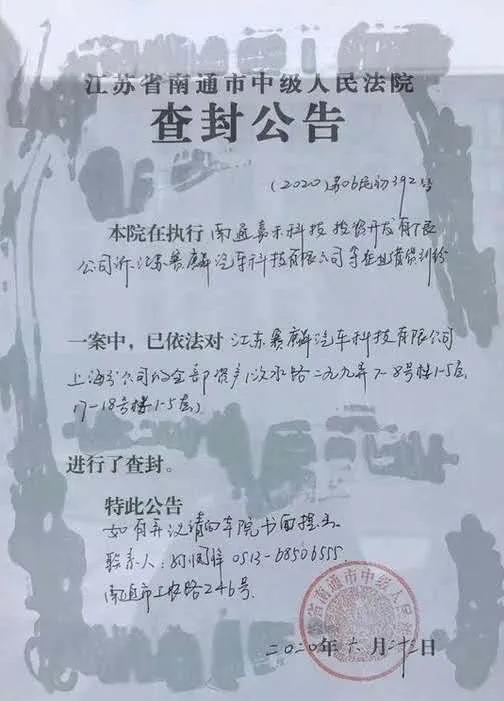 江苏省南通市中级人民法院
查封公告
(2020)苏06民初392号
本院在执行 南通嘉禾科技投资开发有限
公司诉江苏赛麟汽车科技有限公司等企业借贷纠纷
一案中，已依法对 江苏赛麟汽车科技有限公司
上海分公司的全部资产(汶水路二九九弄7-8号楼1-5层
17-18号楼1-5层)
进行了查封。
特此公告
如有异议请向本院书面提出
联系人: 0513-68506555
南通市工农路246号
省南通市中级人民
二〇二〇年六月二十三日